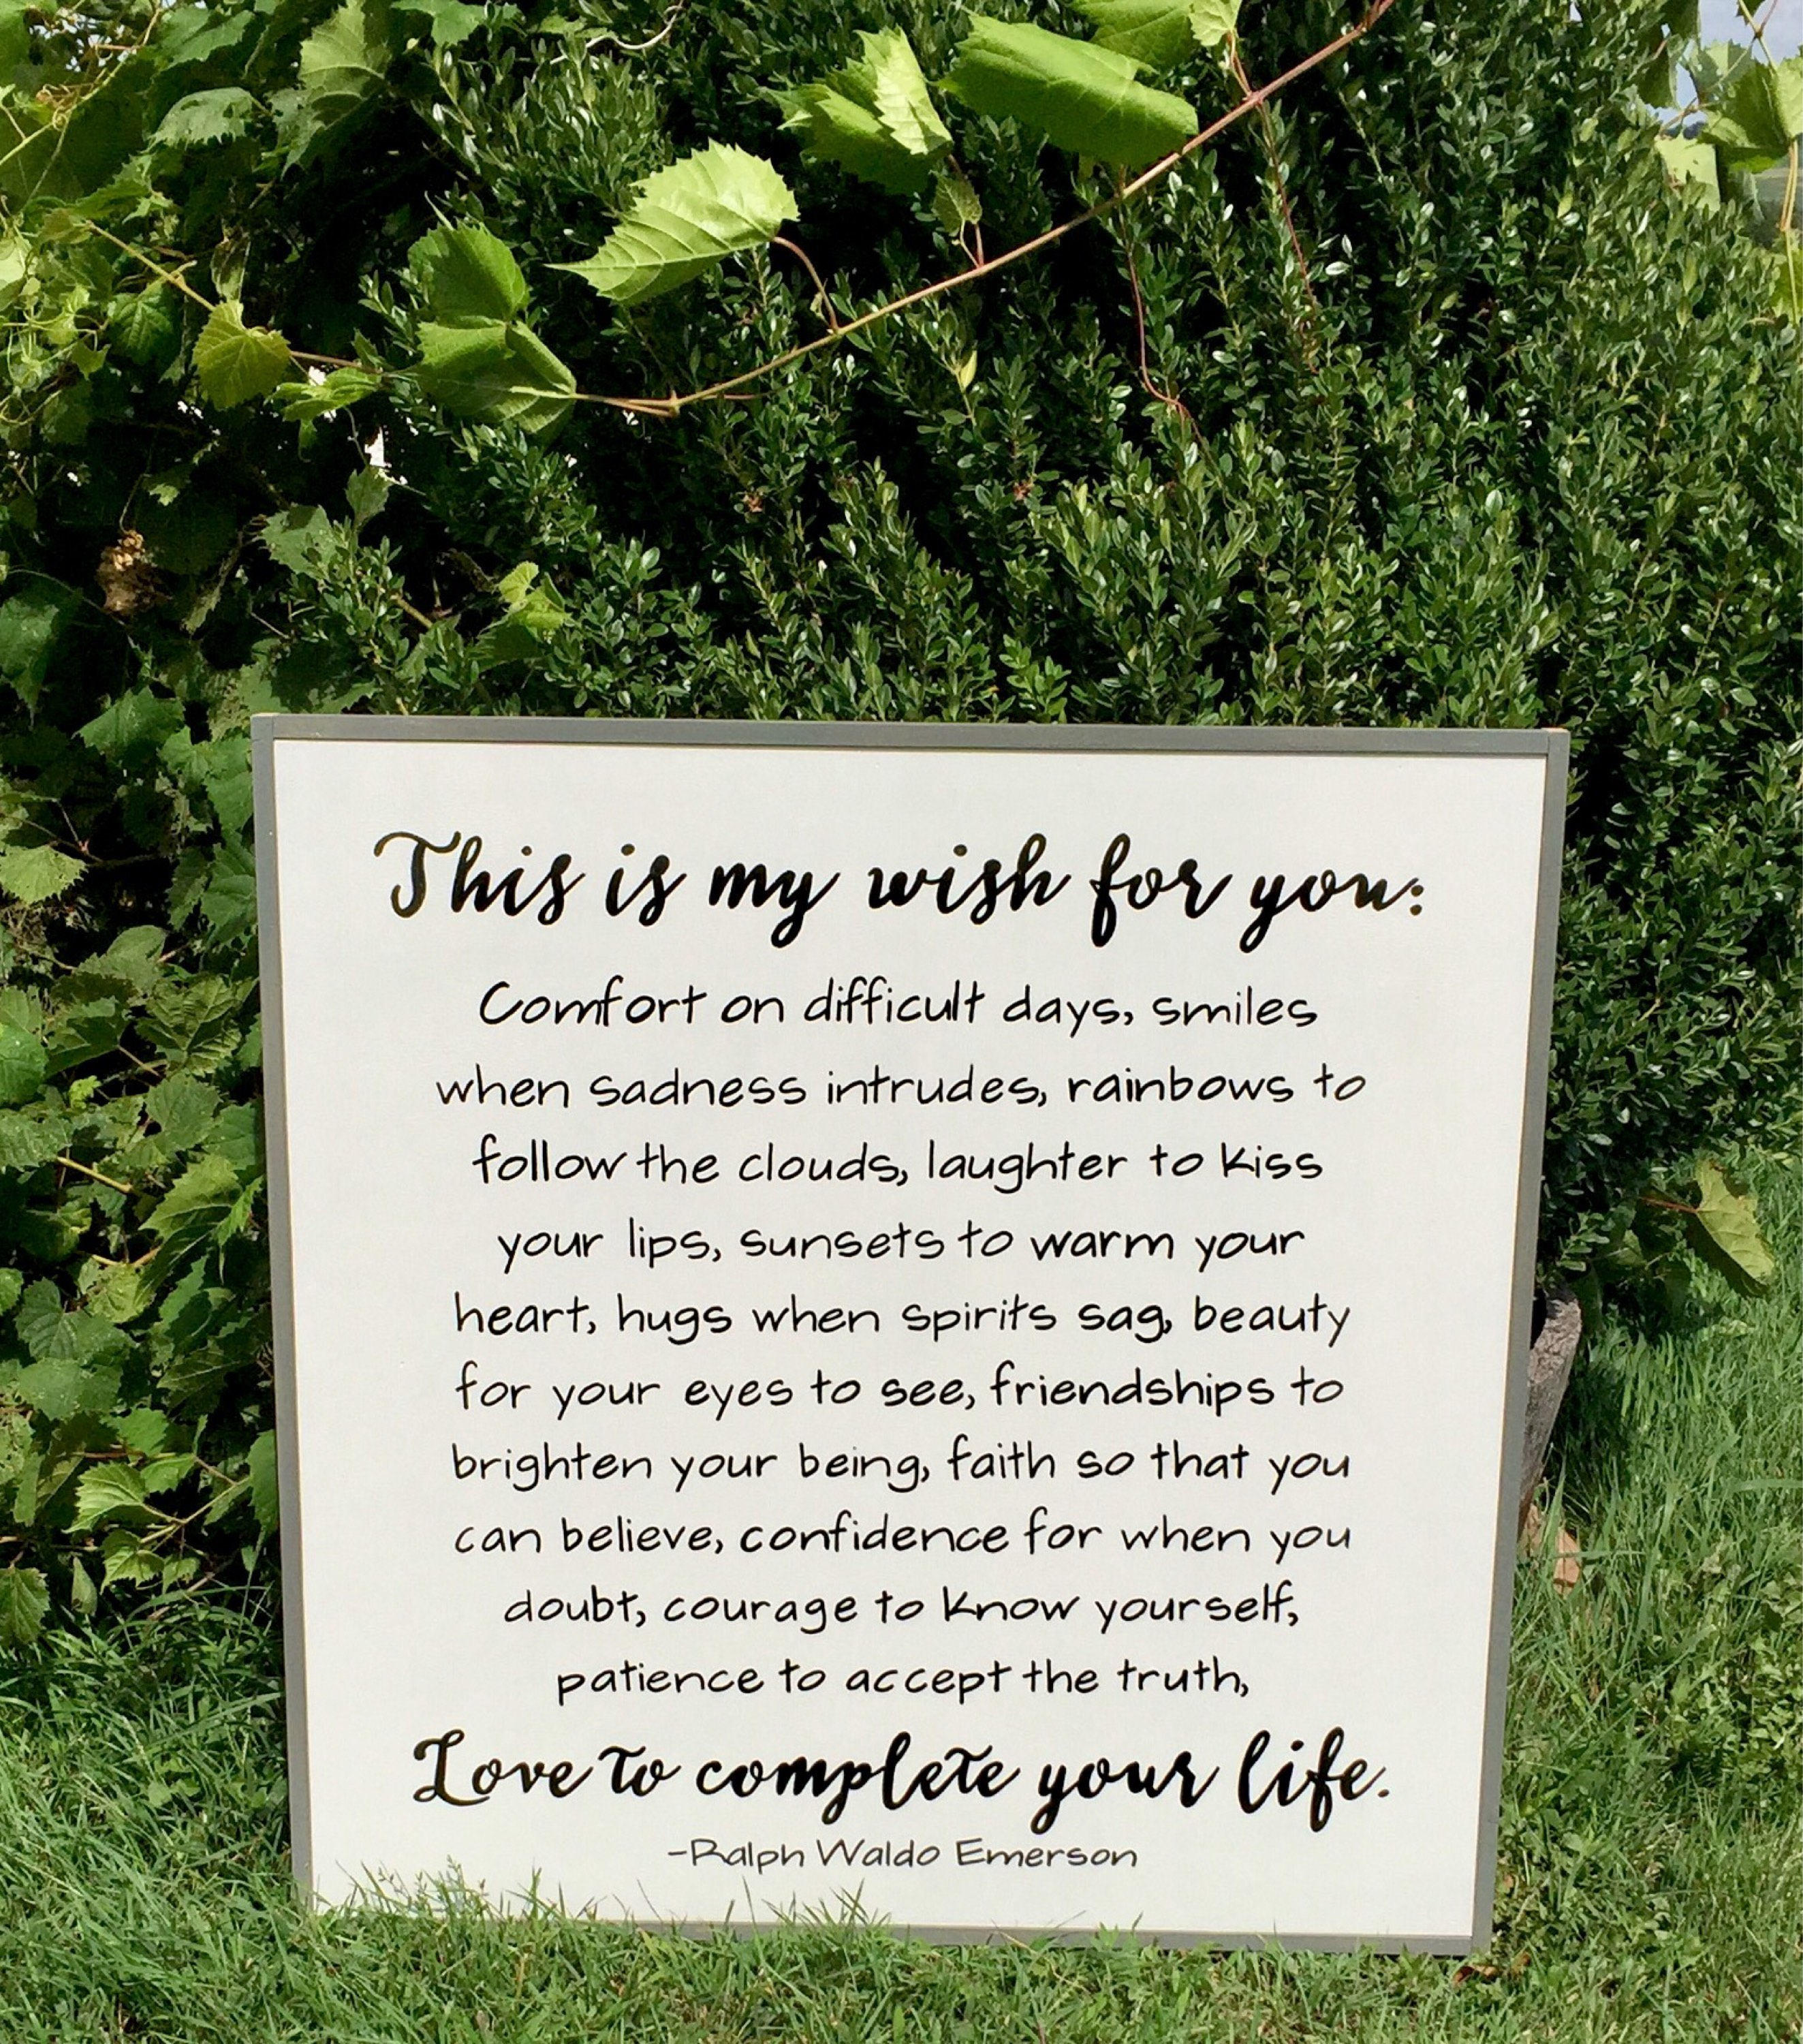 This is my wish for you:
Comfort on difficult days, smiles
when sadness intrudes, rainbows to
follow the clouds, laughter to kiss
your lips, sunsets to warm your
heart, hugs when spirits sag, beauty
for your eyes to see, friendships to
brighten your being, faith so that you
can believe, confidence for when you
doubt, courage to know yourself,
patience to accept the truth,
Love to complete your life.
-Ralph Waldo Emerson